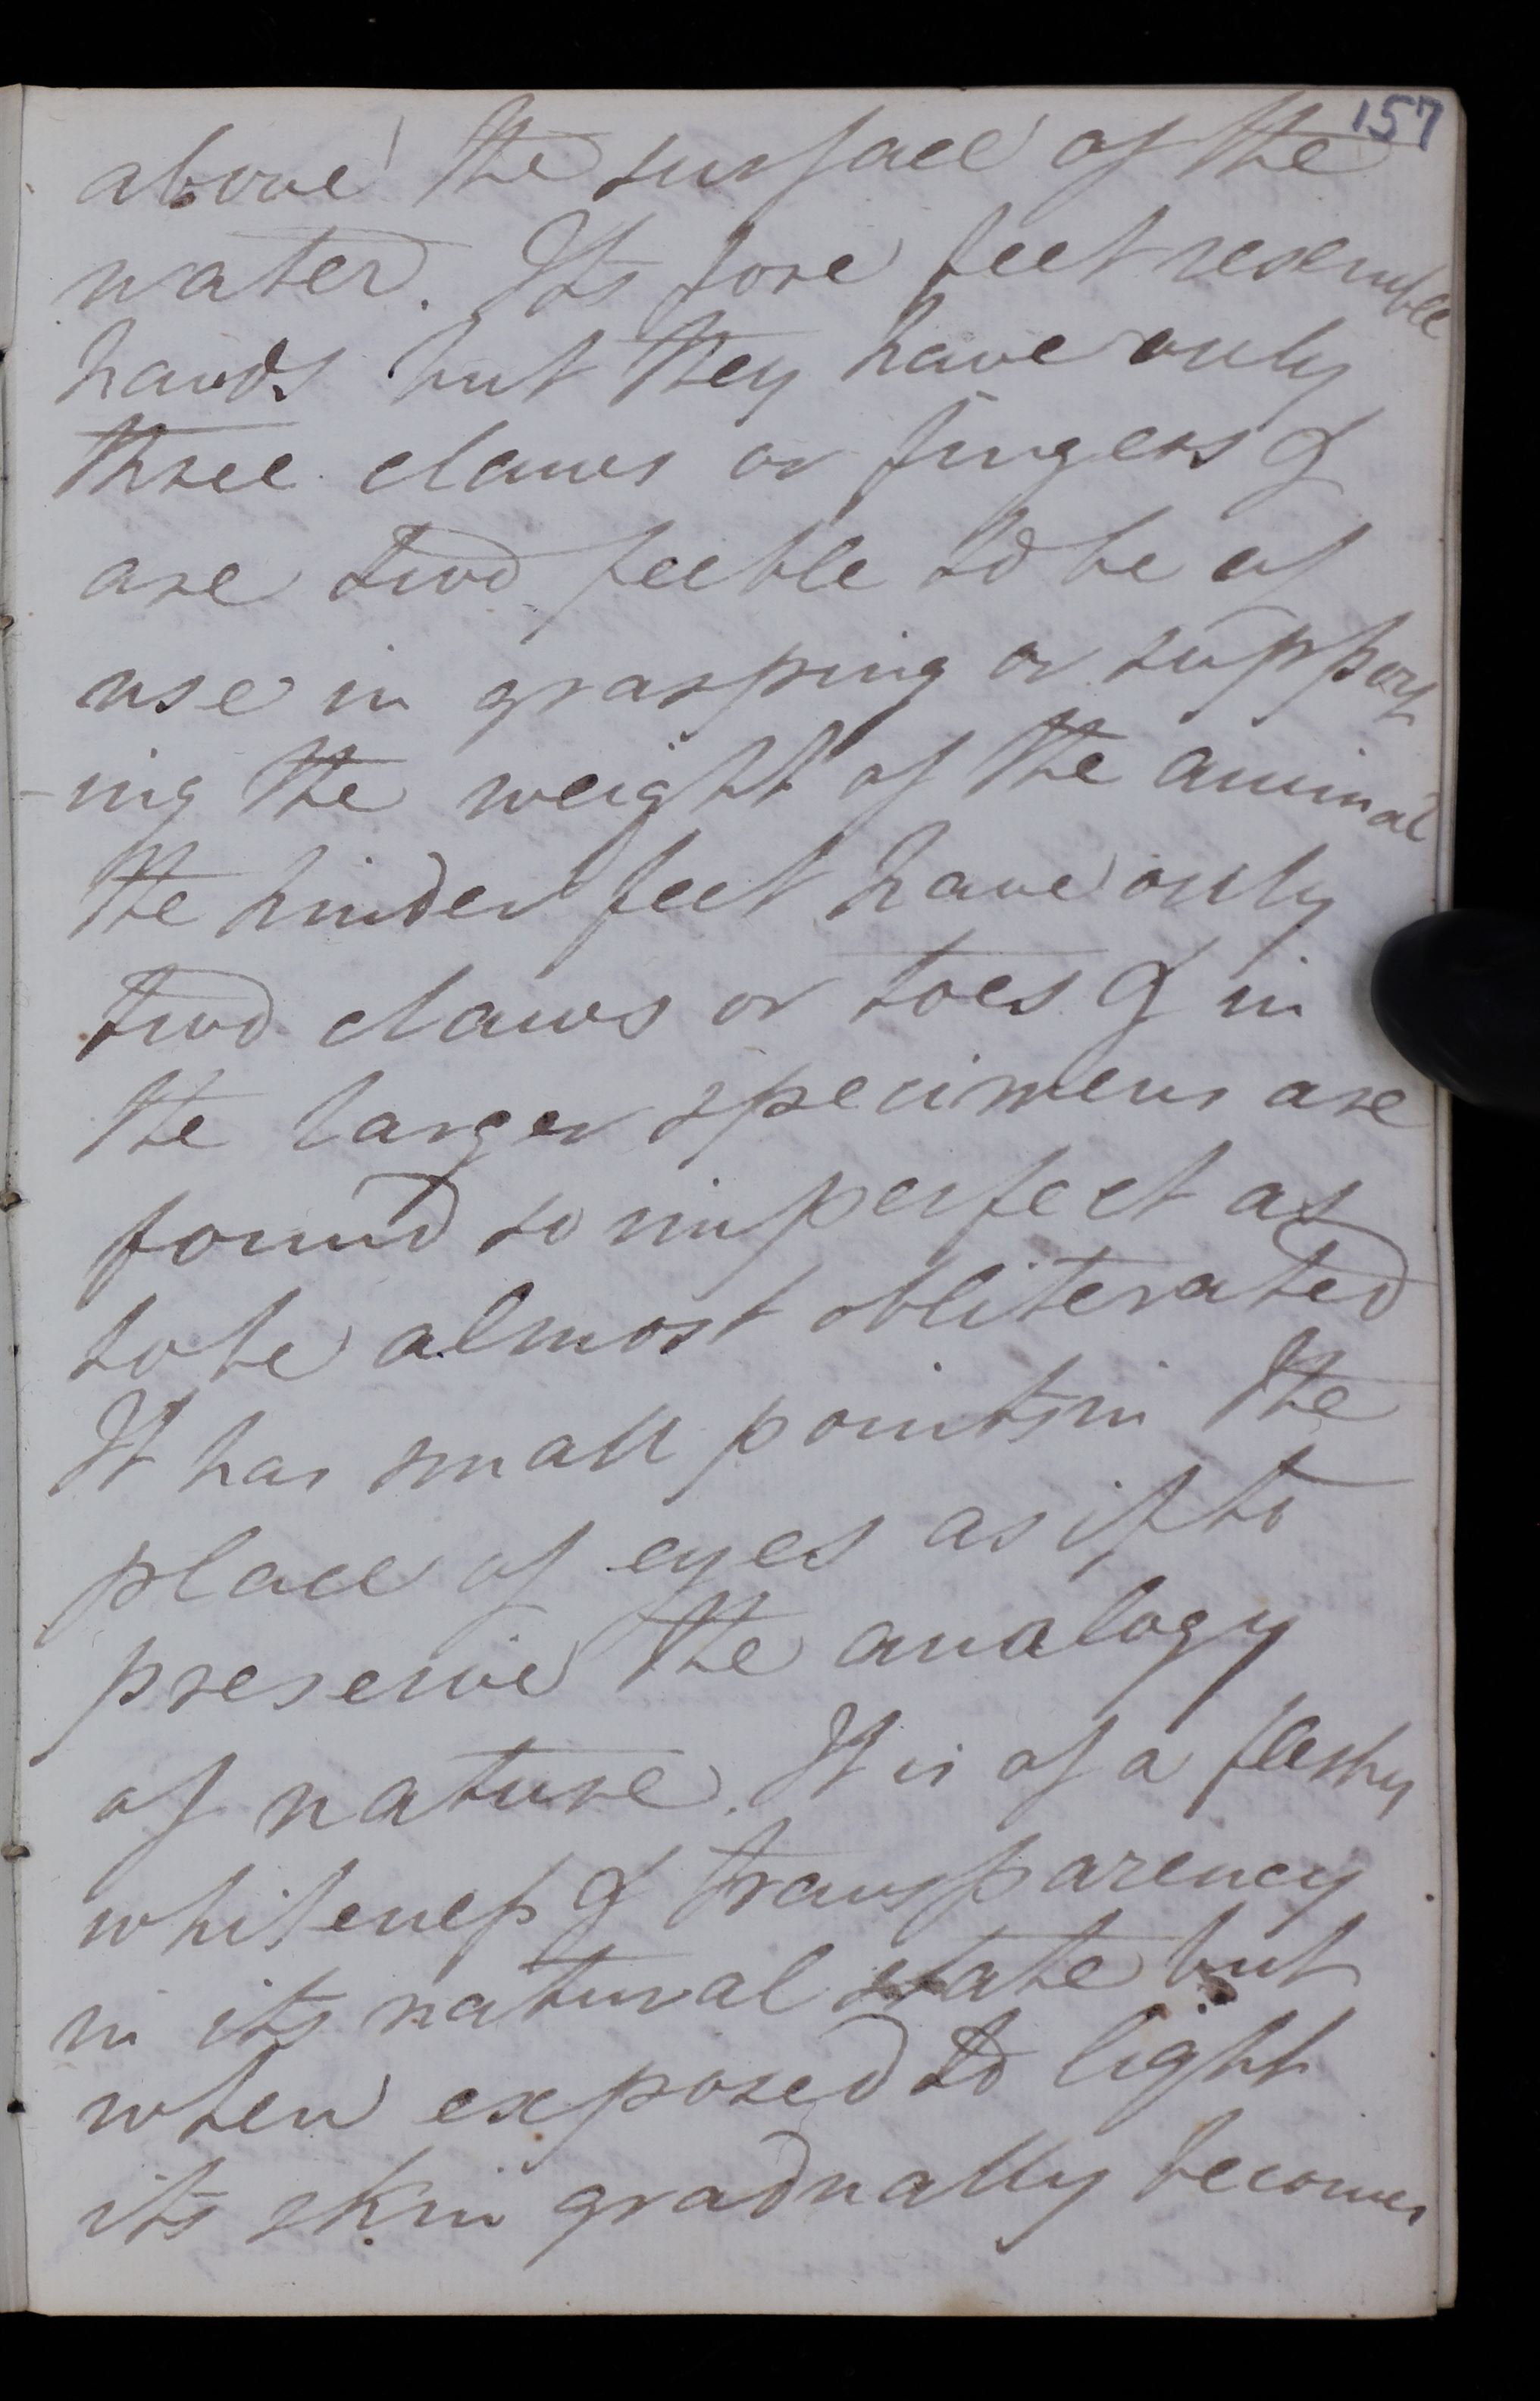 157
above the surface of the
water. Its fore feet resemble
hands but they have only
three claws or fingers &
are two feeble to be of
use in grasping or support
-ing the weight of the animal
the hinder feet have only
two claws or toes & in
the larger specimens are
found so imperfect as
to be almost obliterated
It has small points in the
place of eyes as if to
preserve the analogy
of nature. It is of a fleshy
whiteness & transparency
in its natural state but
when exposed to light
its skin gradually becomes